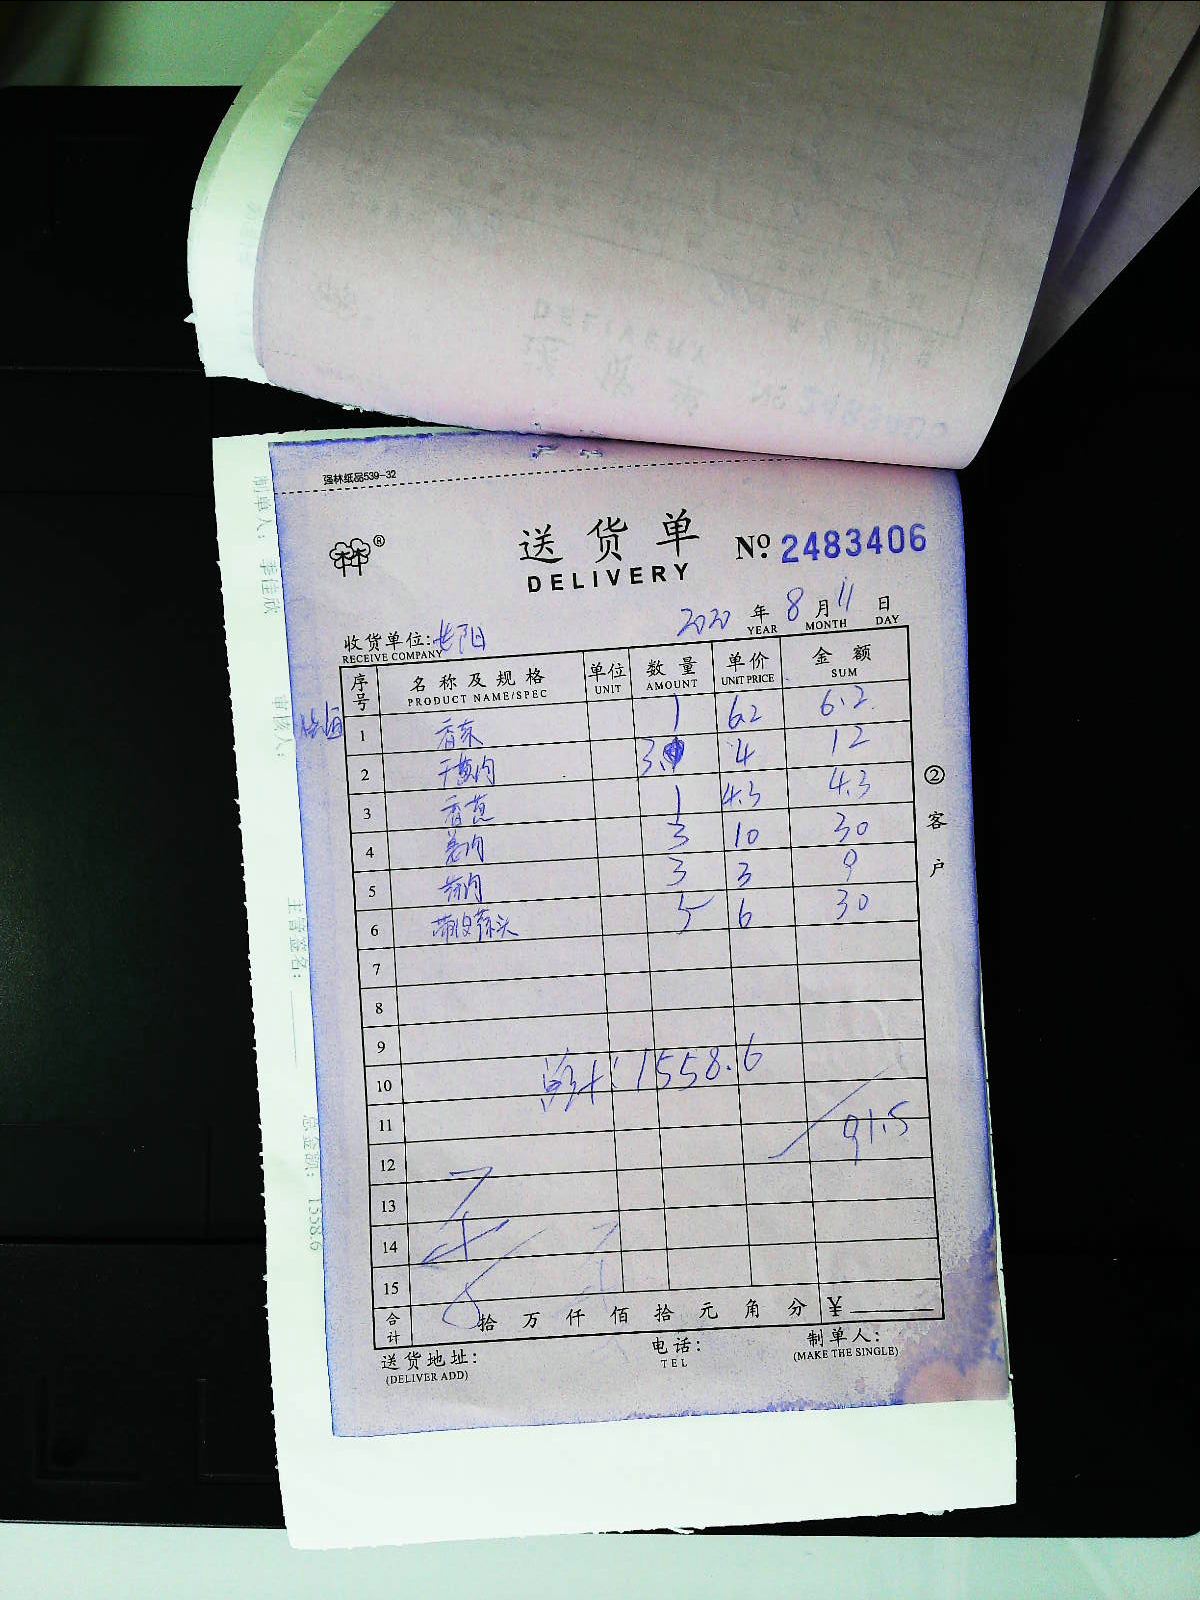 强林纸品539-32
®
送货单
№ 2483406
DELIVERY
2020 年 8 月 11 日
YEAR MONTH DAY
收货单位: 长阳
RECEIVE COMPANY
序号 名称及规格 单位 数量 单价 金额
PRODUCT NAME/SPEC UNIT AMOUNT UNIT PRICE SUM
1 香菜 1 6.2 6.2
2 干葱肉 3. 4 12
3 香葱 1 4.3 4.3
4 姜肉 3 10 30
5 蒜肉 3 3 9
6 带皮蒜头 5 6 30
7
8
9
10 总计: 1558.6
11 91.5
12
13
14
15
合计 拾 万 仟 佰 拾 元 角 分 ¥
送货地址: 电话: 制单人:
(DELIVER ADD) TEL (MAKE THE SINGLE)
②客户
制单人: 李佳欣
审核人:
主管签名:
总金额: 1558.6